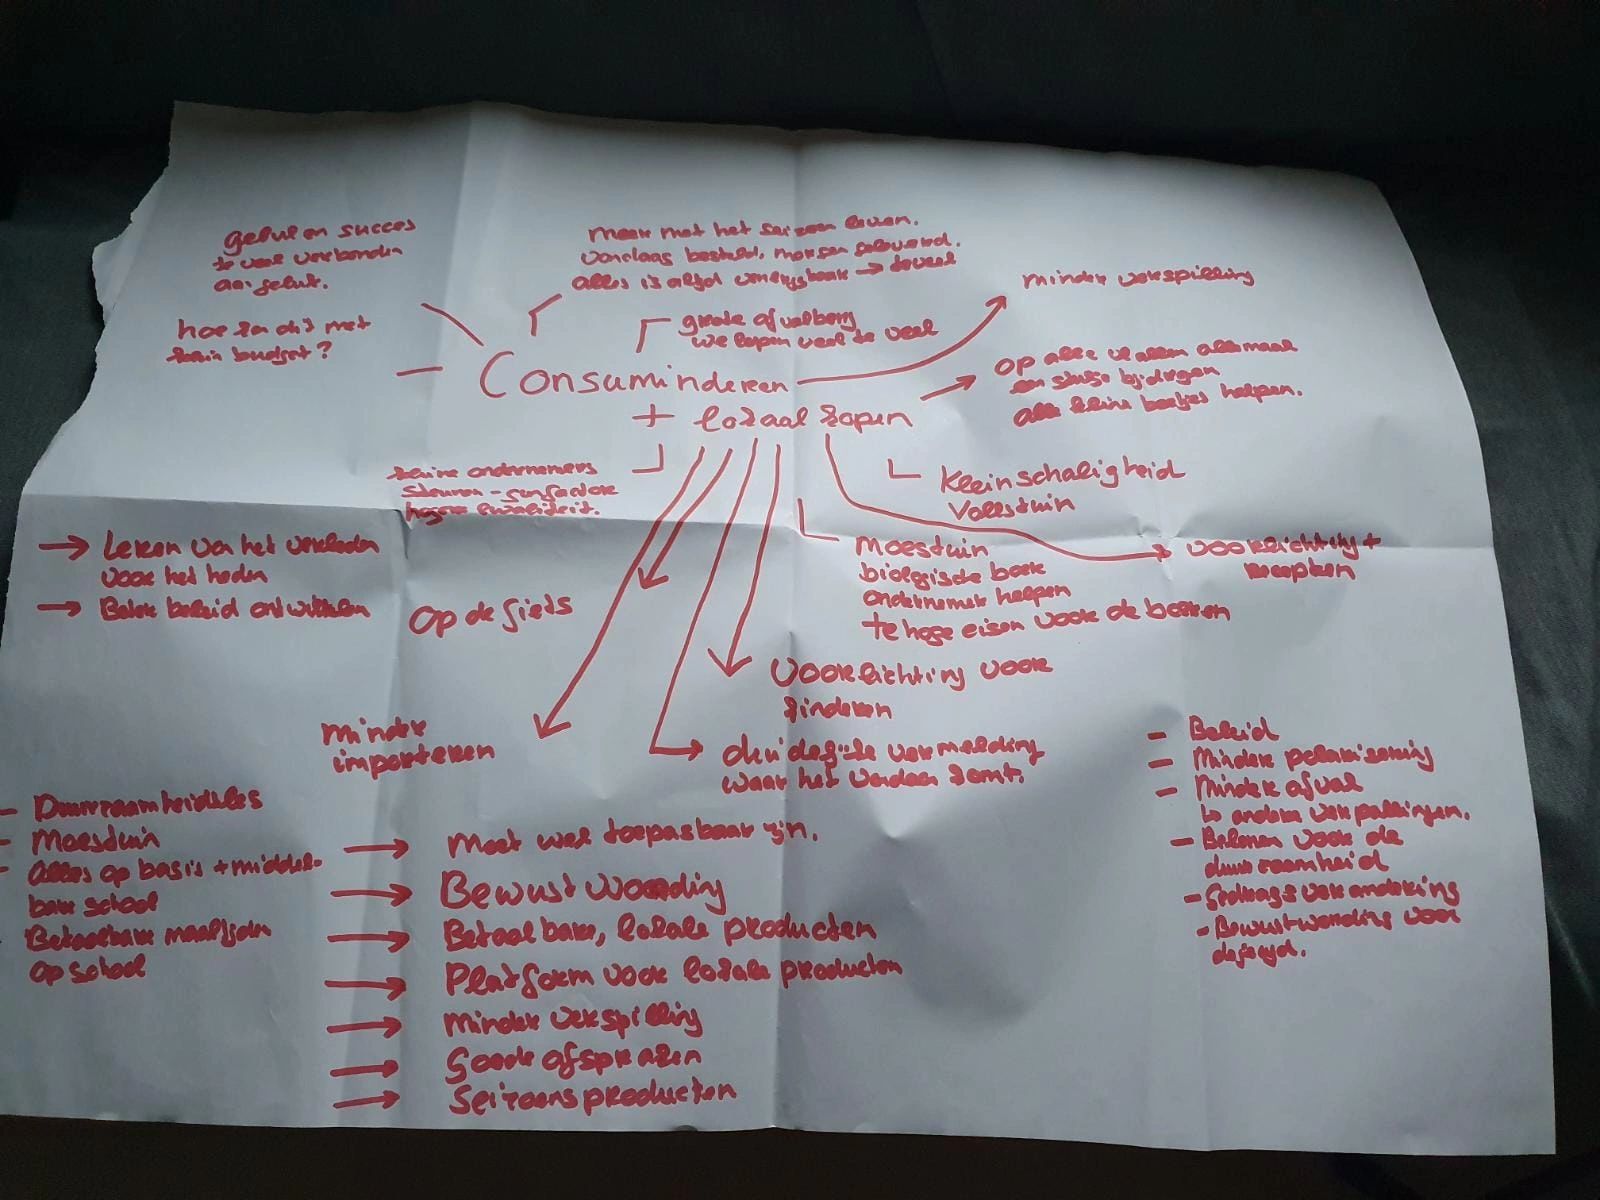 geluk en succes
te veel verbonden
aan geluk.
hoe kan dit met
klein budget?
Meer met het seizoen leven.
vandaag besteld, morgen geleverd.
alles is altijd verkrijgbaar → teveel
grote afvalberg
we kopen veel te veel
minder verspilling
Consuminderen
+ lokaal kopen
op alle vlakken allemaal
een stukje bijdragen
alle kleine beetjes helpen.
kleine ondernemers
steunen -
hogere kwaliteit.
Kleinschaligheid
Volkstuin
→ Leren van het verleden
voor het heden
→ Beter beleid ontwikkelen
op de fiets
Moestuin
biologische boer
ondernemer helpen
te hoge eisen voor de boeren
voorlichting +
recepten
Voorlichting voor
kinderen
minder
importeren
duidelijke vermelding
waar het vandaan komt.
- Duurzaamheidsles
- Moestuin
- Alles op basis + middel-
bare school
- Betaalbare maaltijden
op school
→ Moet wel toepasbaar zijn.
→ Bewustwording
→ Betaalbare, lokale producten
→ Platform voor lokale producten
→ minder verspilling
→ Goede afspraken
→ Seizoensproducten
- Beleid
- Minder polarisering
- Minder afval
↳ andere verpakkingen.
- Belonen voor de
duurzaamheid
- Gedragsverandering
- Bewustwording voor
de jeugd.